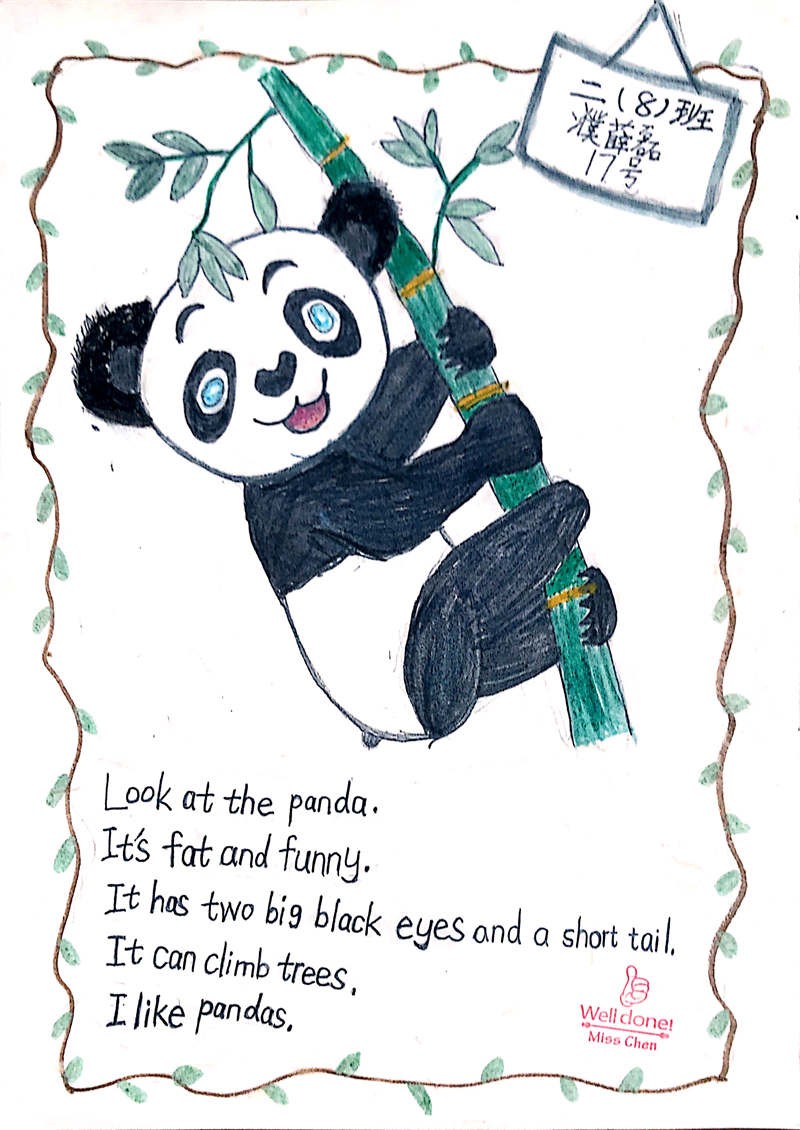 二（8）班
濮薛磊
17号
Look at the panda.
It's fat and funny.
It has two big black eyes and a short tail.
It can climb trees.
I like pandas.
Well done!
Miss Chen